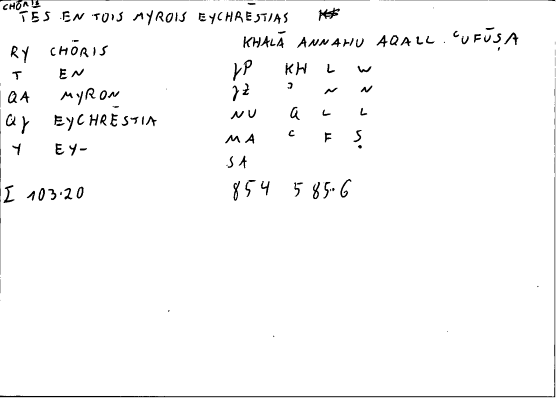 CHŌRIS
TĒS EN TOIS MYROIS EYCHRĒSTIAS
KHALĀ ANNAHU AQALL ʿUFŪṢA
RY CHŌRIS
T EN
QA MYRON
QY EYCHRĒSTIA
Y EY-
γP KH L W
γZ ʾ N N
NU Q L L
MA ʿ F Ṣ
SA
Σ 103.20
854 585.6